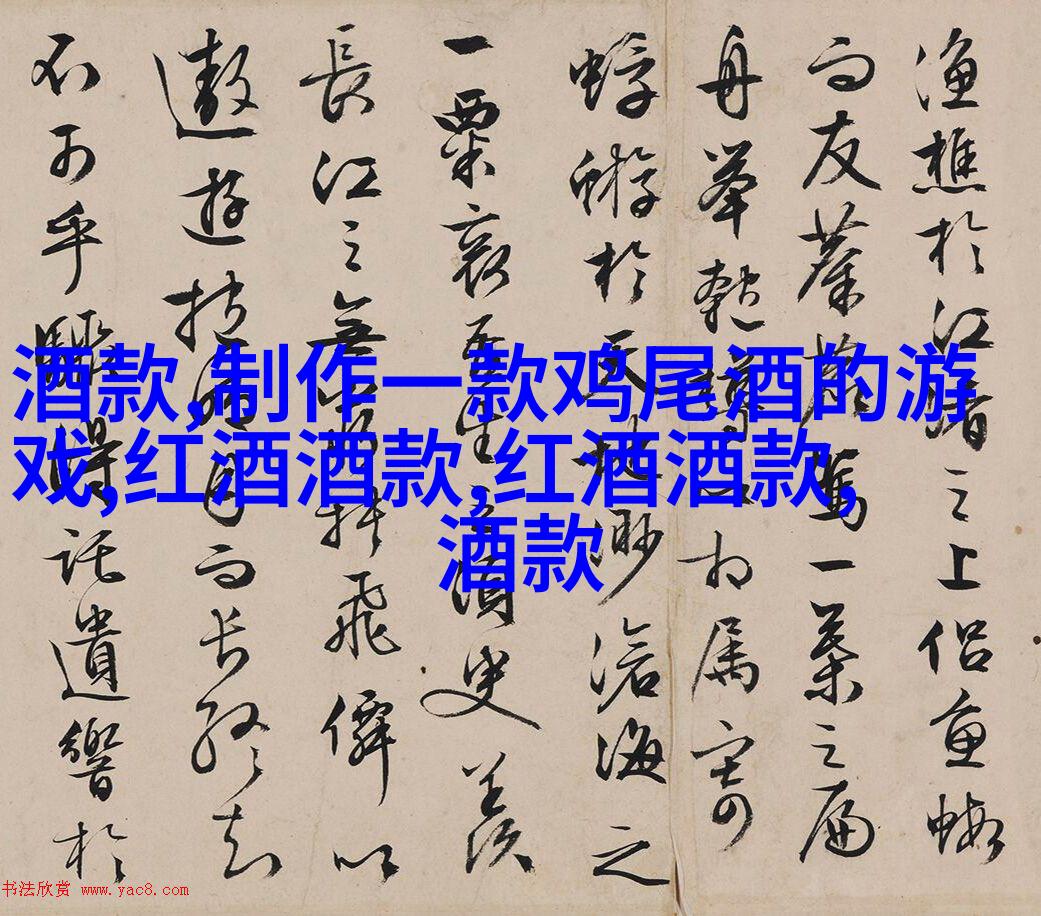 渔樵於江渚之上侣魚蝦
而友麋鹿駕一葉之扁
舟舉匏樽以相属寄
蜉蝣於天地渺滄海之
一粟哀吾生之須臾羨
長江之無窮挾飛僊以
遨遊抱明月而长終知
不可乎驟得託遺響於
酒款,制作一款鸡尾酒的游
戏,红酒酒款,红酒酒款,
酒款
书法欣赏 www.yac8.com